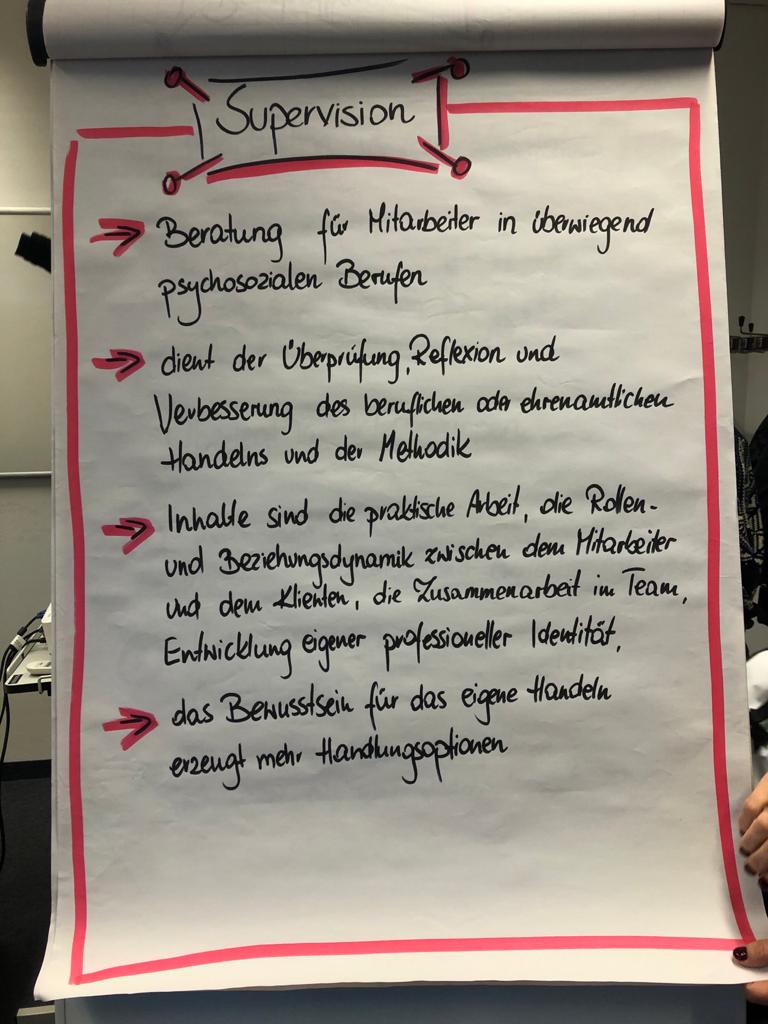 Supervision
Beratung für Mitarbeiter in überwiegend
psychosozialen Berufen
dient der Überprüfung, Reflexion und
Verbesserung des beruflichen oder ehrenamtlichen
Handelns und der Methodik
Inhalte sind die praktische Arbeit, die Rollen-
und Beziehungsdynamik zwischen dem Mitarbeiter
und dem Klienten, die Zusammenarbeit im Team,
Entwicklung eigener professioneller Identität,
das Bewusstsein für das eigene Handeln
erzeugt mehr Handlungsoptionen